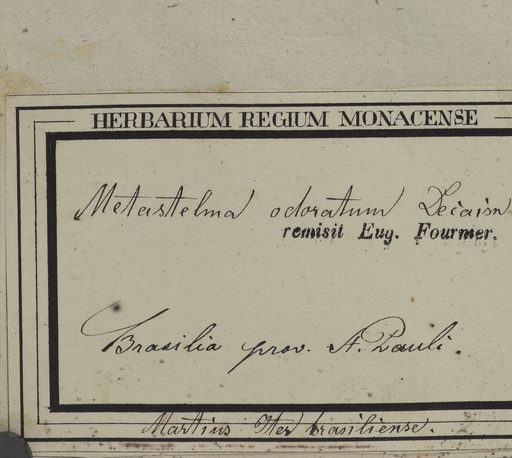 HERBARIUM REGIUM MONACENSE
Metastelma odoratum Decaisn
remisit Eug. Fourmer.
Brasilia prov. S. Pauli.
Martius Iter brasiliense.